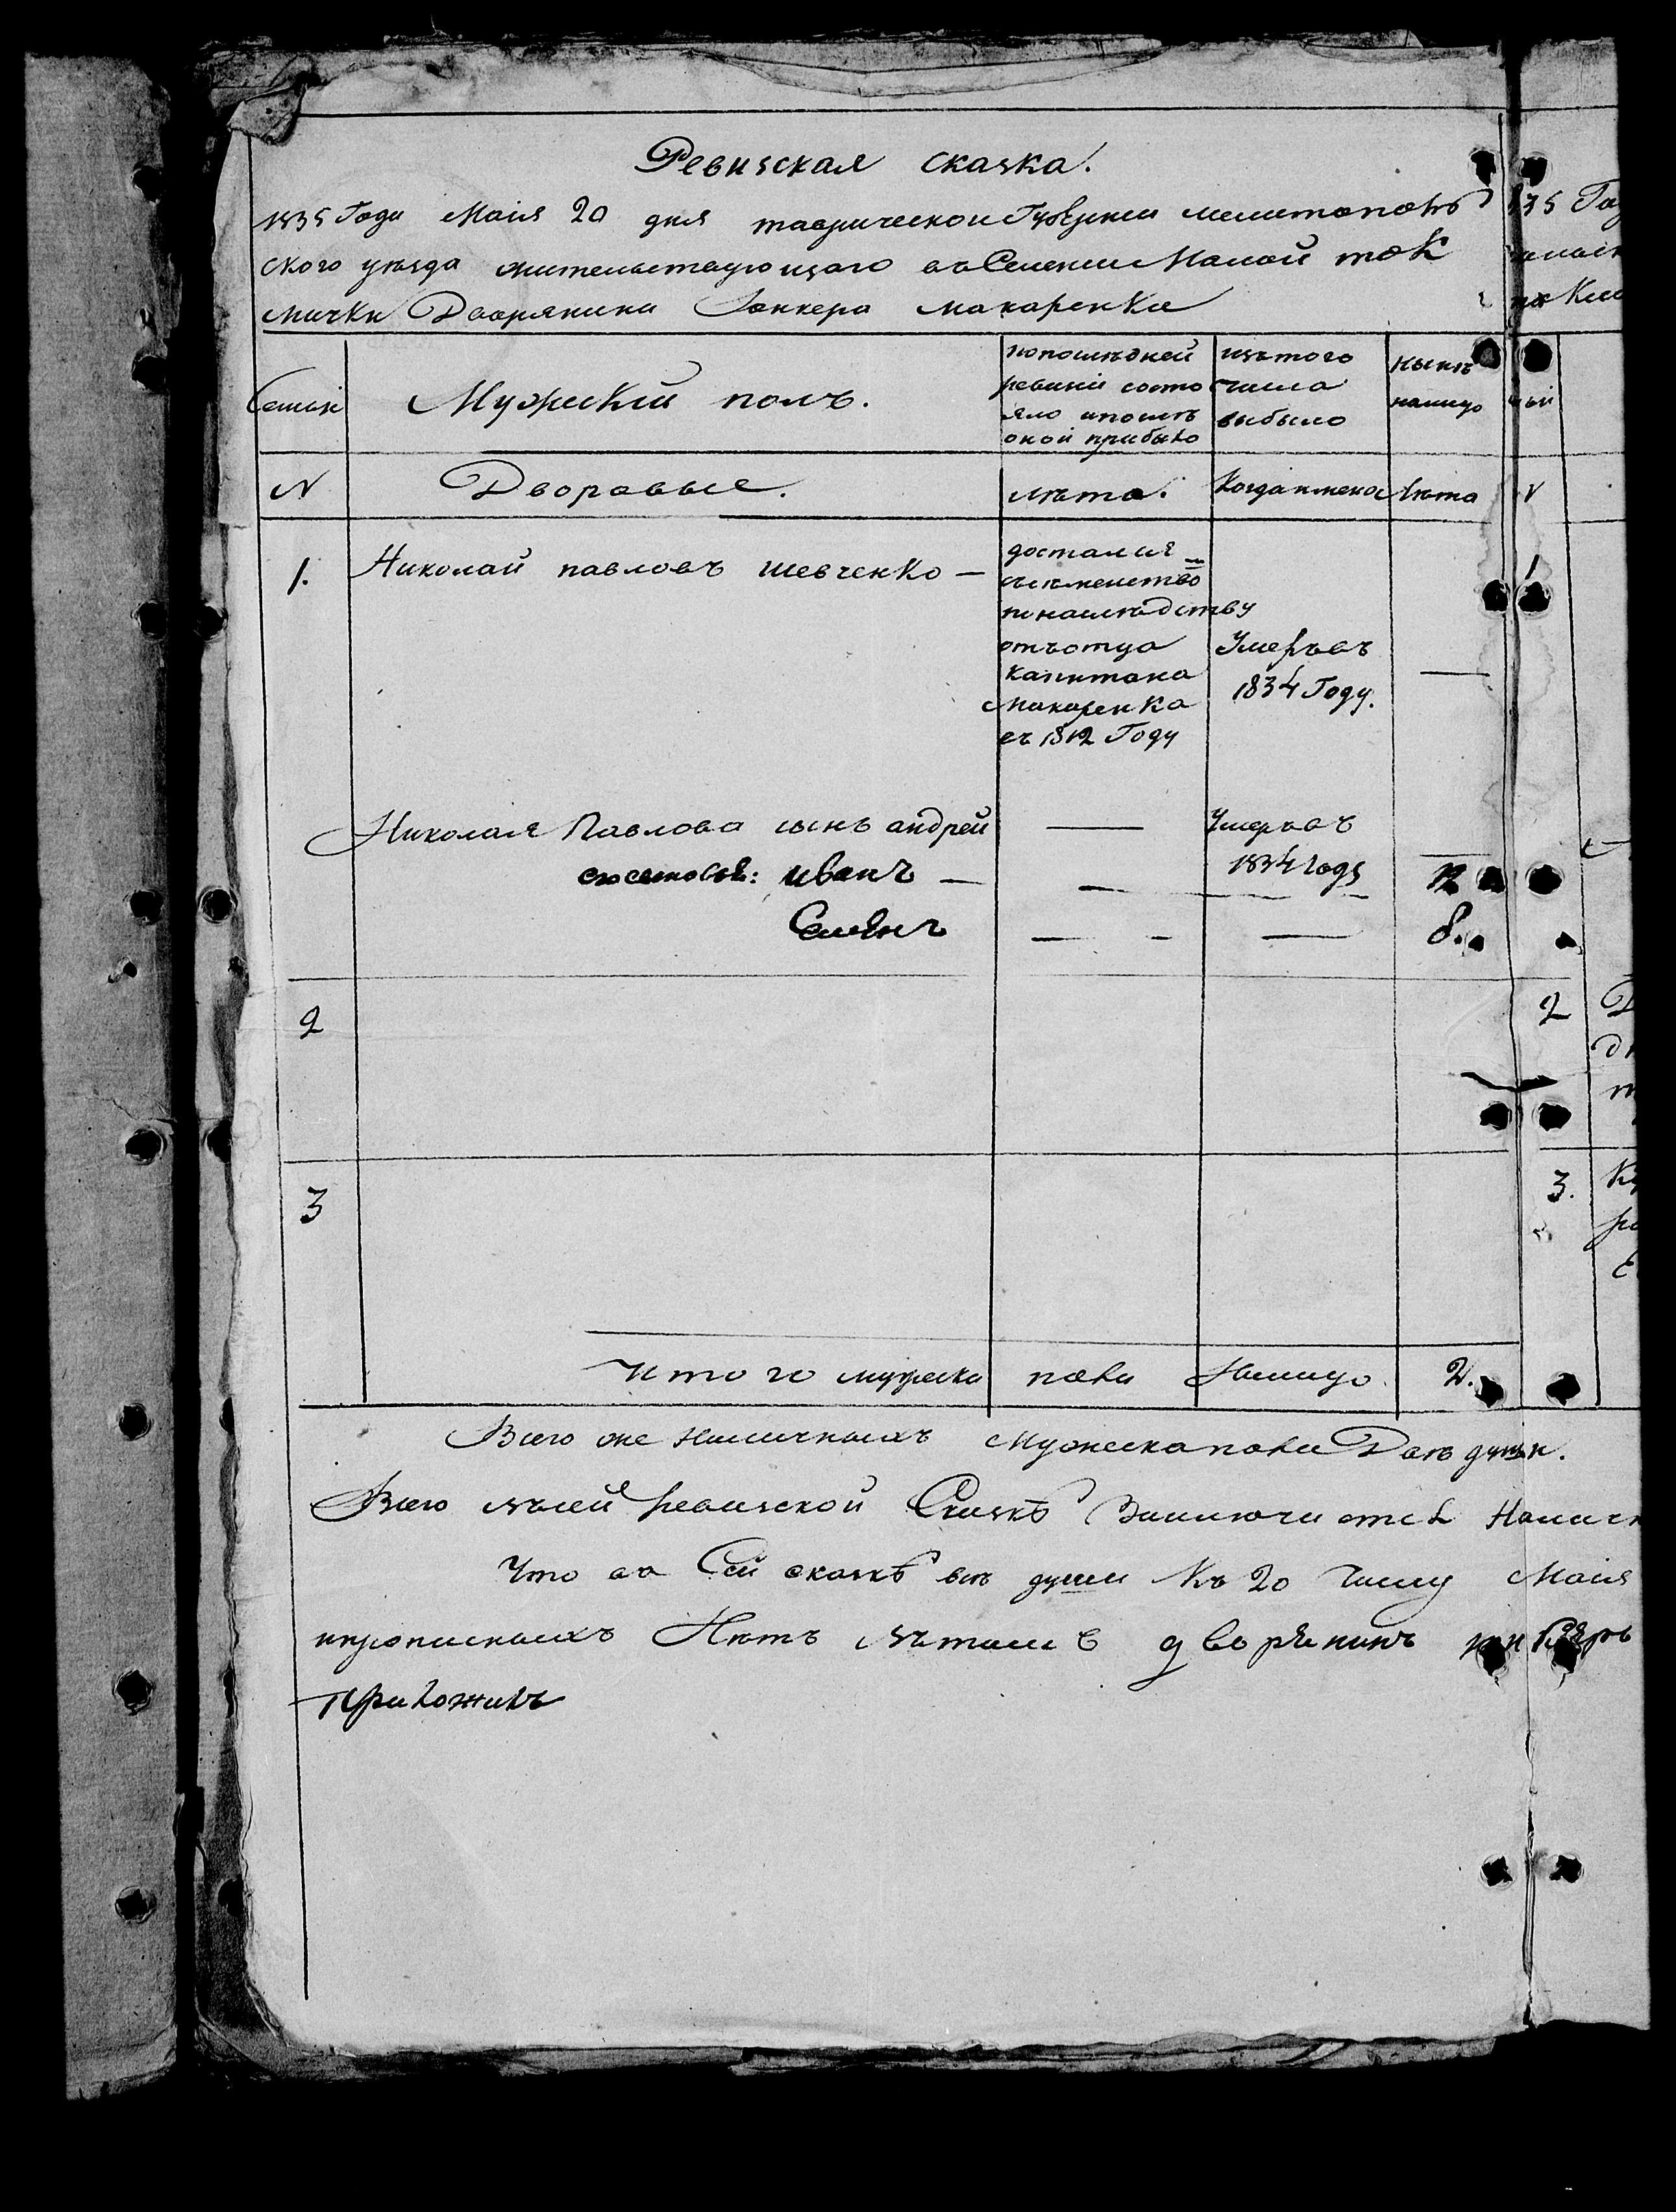 Ревизская сказка.
1835 Года Маія 20 дня таврической Губерніи мелитополь
ского уезда жительствующаго въ Селеніи Малой ток
мачки Дворянина Юнкера макаренка
Семьи
Мужескій полъ.
попоследней
ревизіи состо
яло ипосле
оной прибыло
изъ того
числа
выбыло
ныне
налицо
N
Дворовые.
лета.
Когда имено
Лета
1.
Николай павловъ шевченко —
достался
понаследству
отъотца
капитана
Макаренка
въ 1812 Году
Умеръ въ
1834 Году.
—
Николая Павлова сынъ андрей
—
Умеръ въ
1834 году
иванъ —
—
12
Семенъ
—
—
8.
2
3
Итого мужеска пола Налицо 2.
Всего же Наличныхъ Мужеска пола Две души.
Всего въсей ревизской Сказке Наличн
Что въ Сей сказке все души Къ 20 Числу Маія
Нетъ дворянинъ юнкеръ
приложилъ
135 Год
2
3.